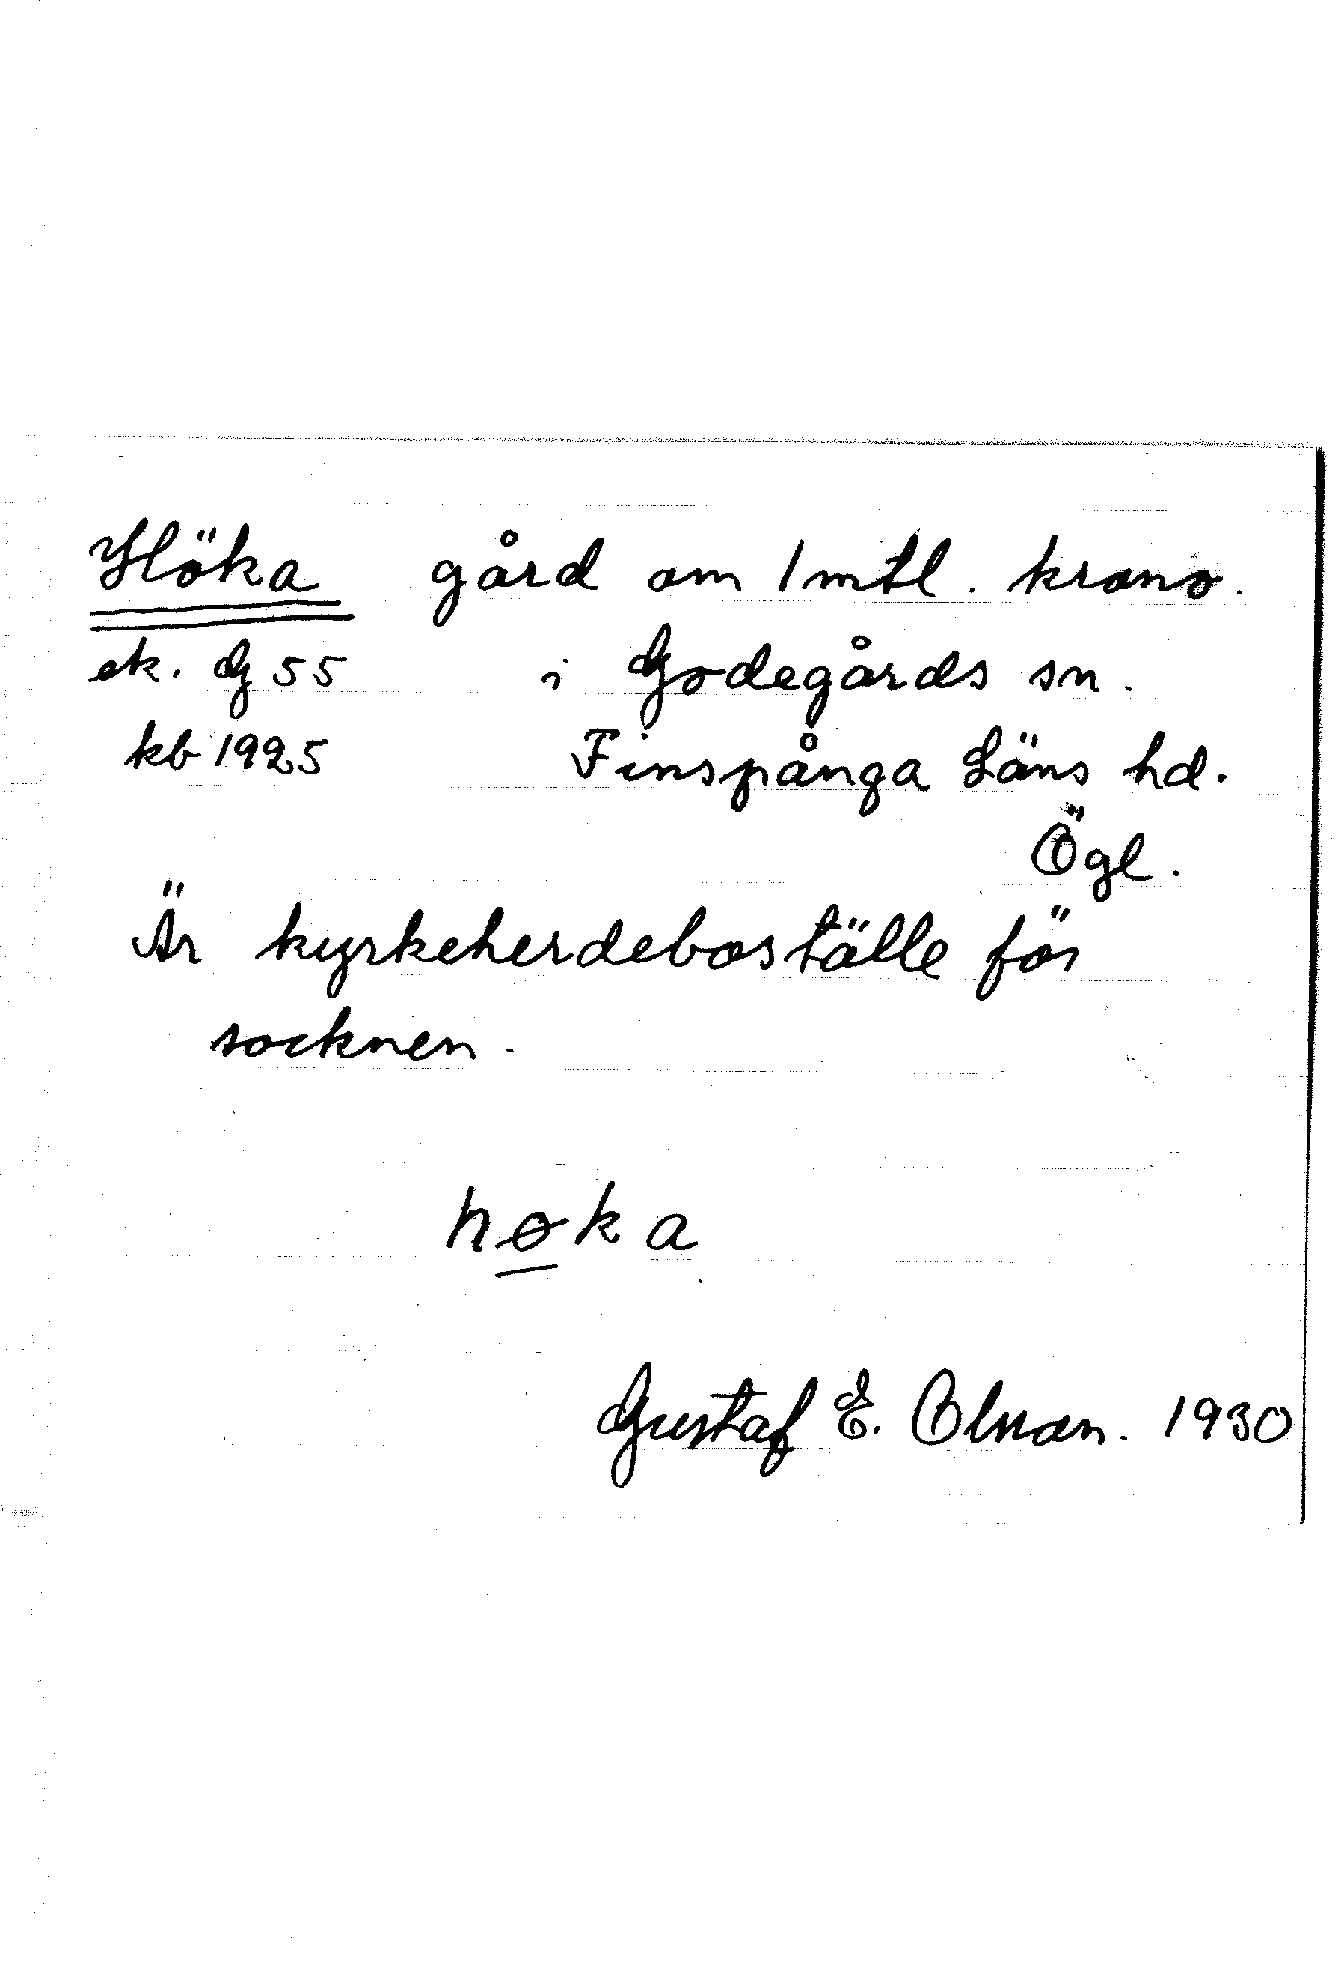 Höka gård om 1 mtl. krono.
ek. G 55 i Godegårds sn.
kb 1925 Finspånga Läns hd.
Ögl.
Är kyrkoherdeboställe för
socknen.
høka
Gustaf E. 1930